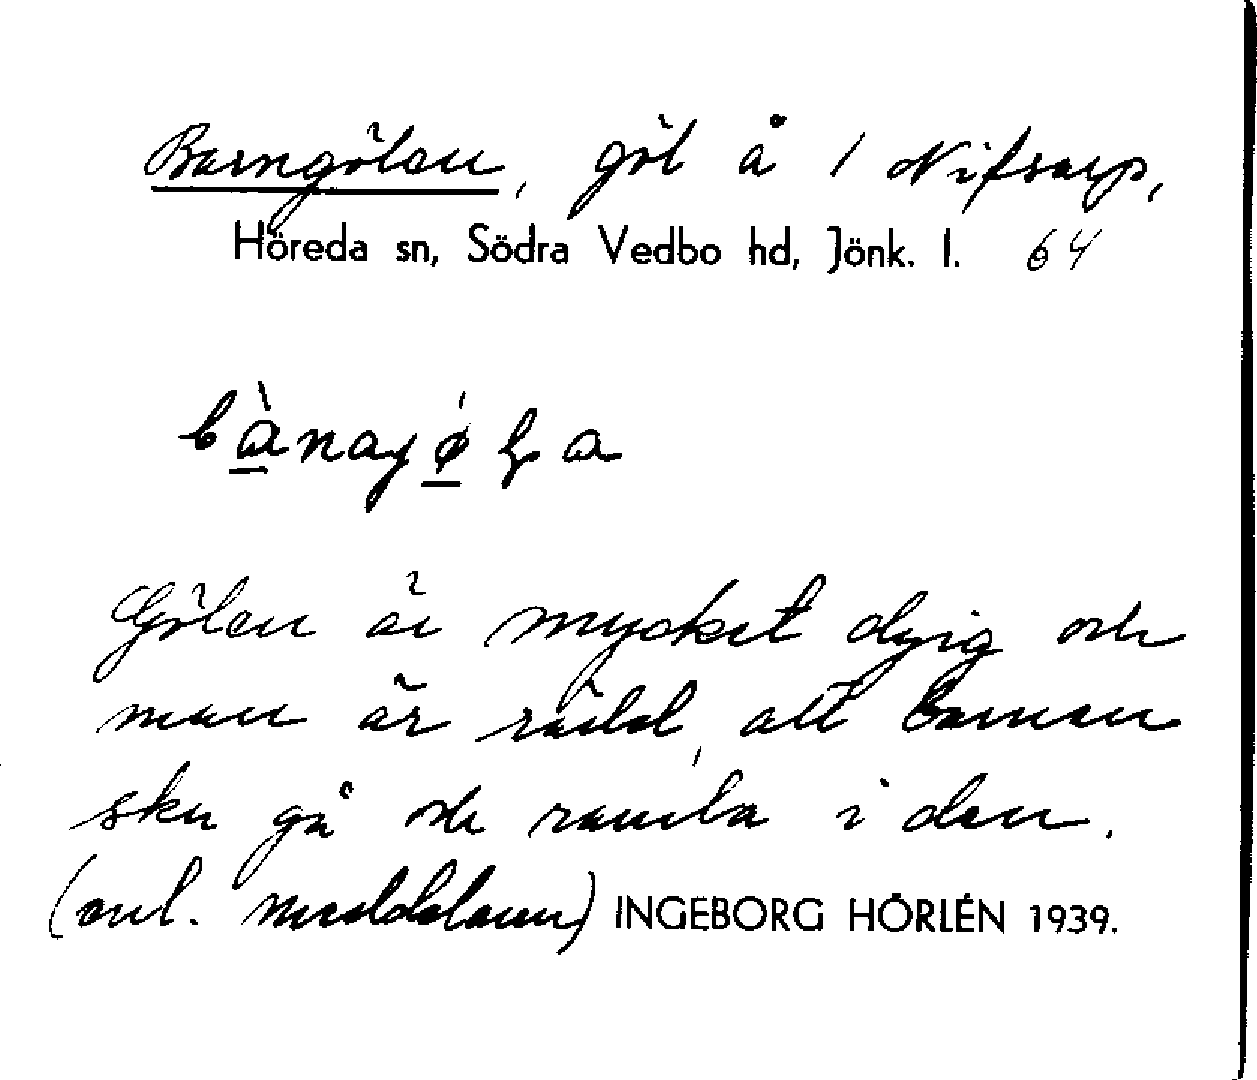 Barngölen, göl å 1 Nifsarp,
Höreda sn, Södra Vedbo hd, Jönk. l. 64
bànaɟǿɽa
Gölen är mycket dyig och
man är rädd, att barnen
sku gå ock ramla i den.
(enl. meddelaren) INGEBORG HÖRLÉN 1939.